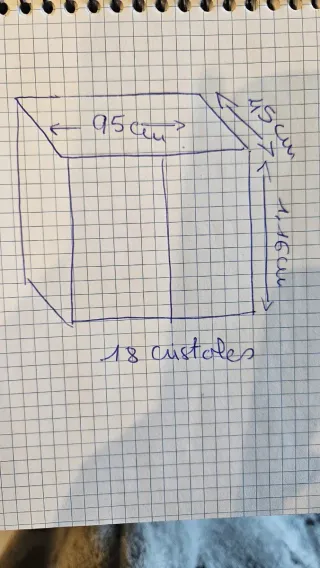 95 cm
45 cm
1,16 cm
18 cristales